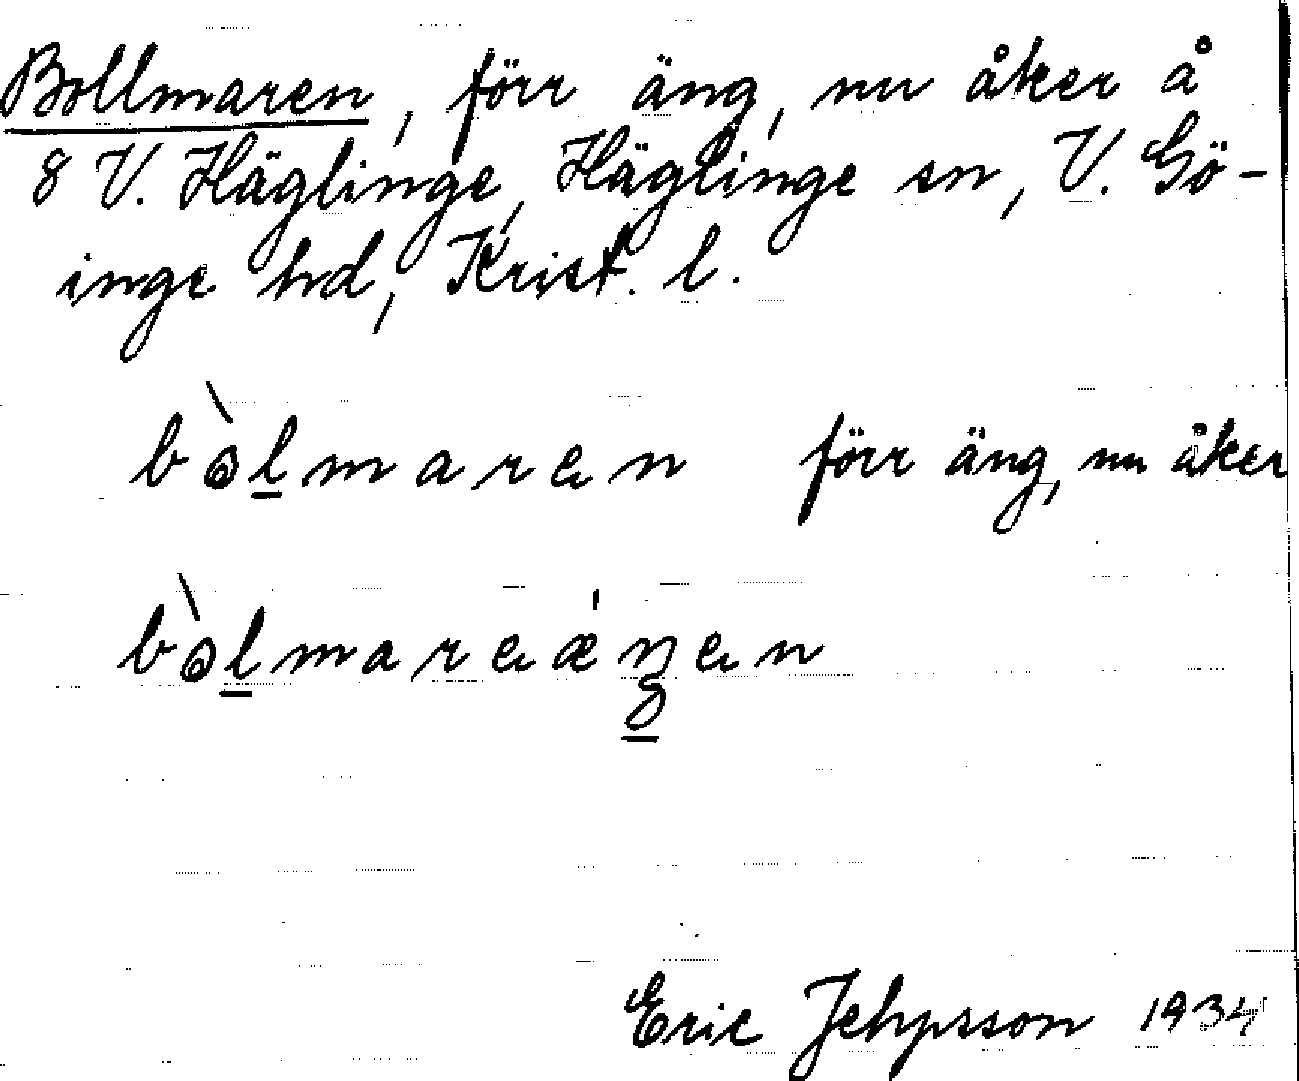 Bollmaren, förr äng, nu åker å
8 V. Häglinge, Häglinge sn, V. Gö-
inge hd, Krist. l.
bòlmaren förr äng, nu åker
bòlmareæŋen
Eric Jehpsson 1934